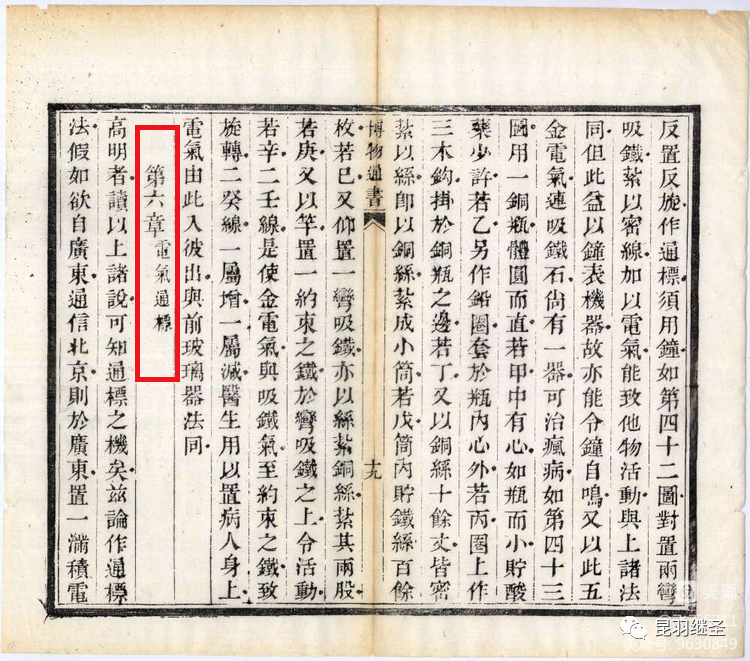 反置反旋作通標須用鐘如第四十二圖對置兩彎
吸鐵紮以密線加以電氣能致他物活動與上諸法
同但此益以鐘表機器故亦能令鐘自鳴又以此五
金電氣連吸鐵石尚有一器可治瘋病如第四十三
圖用一銅瓶體圓而直若甲中有心如瓶而小貯酸
藥少許若乙另作鉛圈套於瓶內心外若丙圈上作
三木鈎掛於銅瓶之邊若丁又以銅絲十餘丈皆密
紮以絲卽以銅絲紮成小筒若戊筒內貯鐵絲百餘
博物通書
十九
枚若巳又仰置一彎吸鐵亦以絲紮銅絲紮其兩股
若庚又以竿置一約束之鐵於彎吸鐵之上令活動
若辛二壬線是使金電氣與吸鐵氣至約束之鐵致
旋轉二癸線一屬增一屬減醫生用以置病人身上
電氣由此入彼出與前玻璃器法同
第六章電氣通標
高明者讀以上諸說可知通標之機矣茲論作通標
法假如欲自廣東通信北京則於廣東置一滿積電
美篇
昆羽继圣
9630849